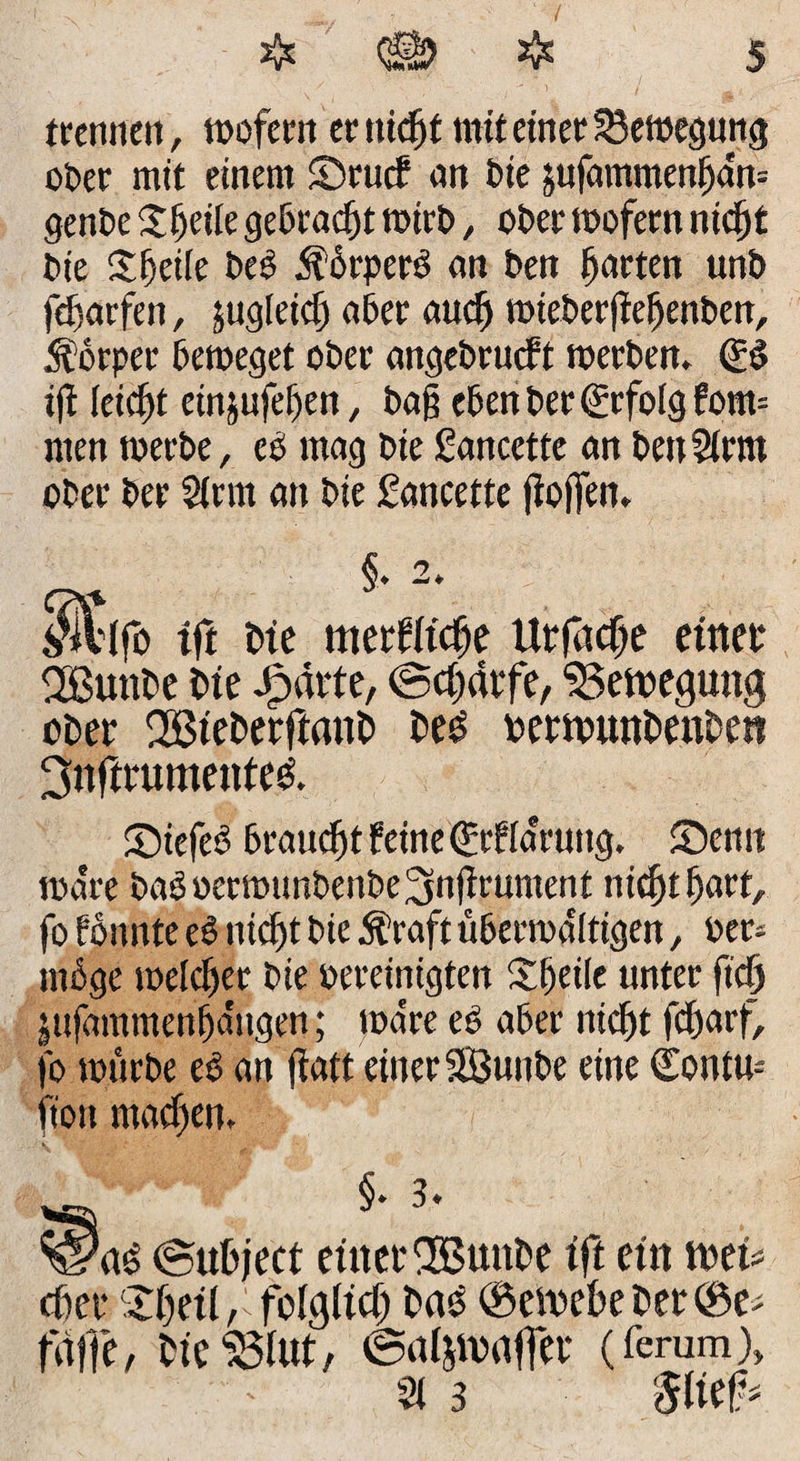 5
trennen, wofern er nicht mit einer Bewegung
oder mit einem Druck an die zusammenhän-
gende Theile gebracht wird, oder wofern nicht
die Theile des Körpers an den harten und
scharfen, zugleich aber auch wiederstehenden,
Körper beweget oder angedruckt werden. Es
ist leicht einzusehen, daß eben der Erfolg kom-
men werde, es mag die Lancette an den Arm
oder der Arm an die Lancette stossen.
§. 2.
Also ist die merkliche Ursache einer
Wunde die Härte, Schärfe, Bewegung
oder Wiederstand des verwundenden
Instrumentes.
Dieses braucht keine Erklärung. Denn
wäre das verwundende Instrument nicht hart,
so könnte es nicht die Kraft überwältigen, ver-
möge welcher die vereinigten Theile unter sich
zusammenhängen; wäre es aber nicht scharf,
so würde es an statt einer Wunde eine Contu-
sion machen.
§. 3.
Das Subject einer Wunde ist ein wei-
cher Theil, folglich das Gewebe der Ge-
fässe, die Blut, Salzwasser (serum),
A 3 Fließ-